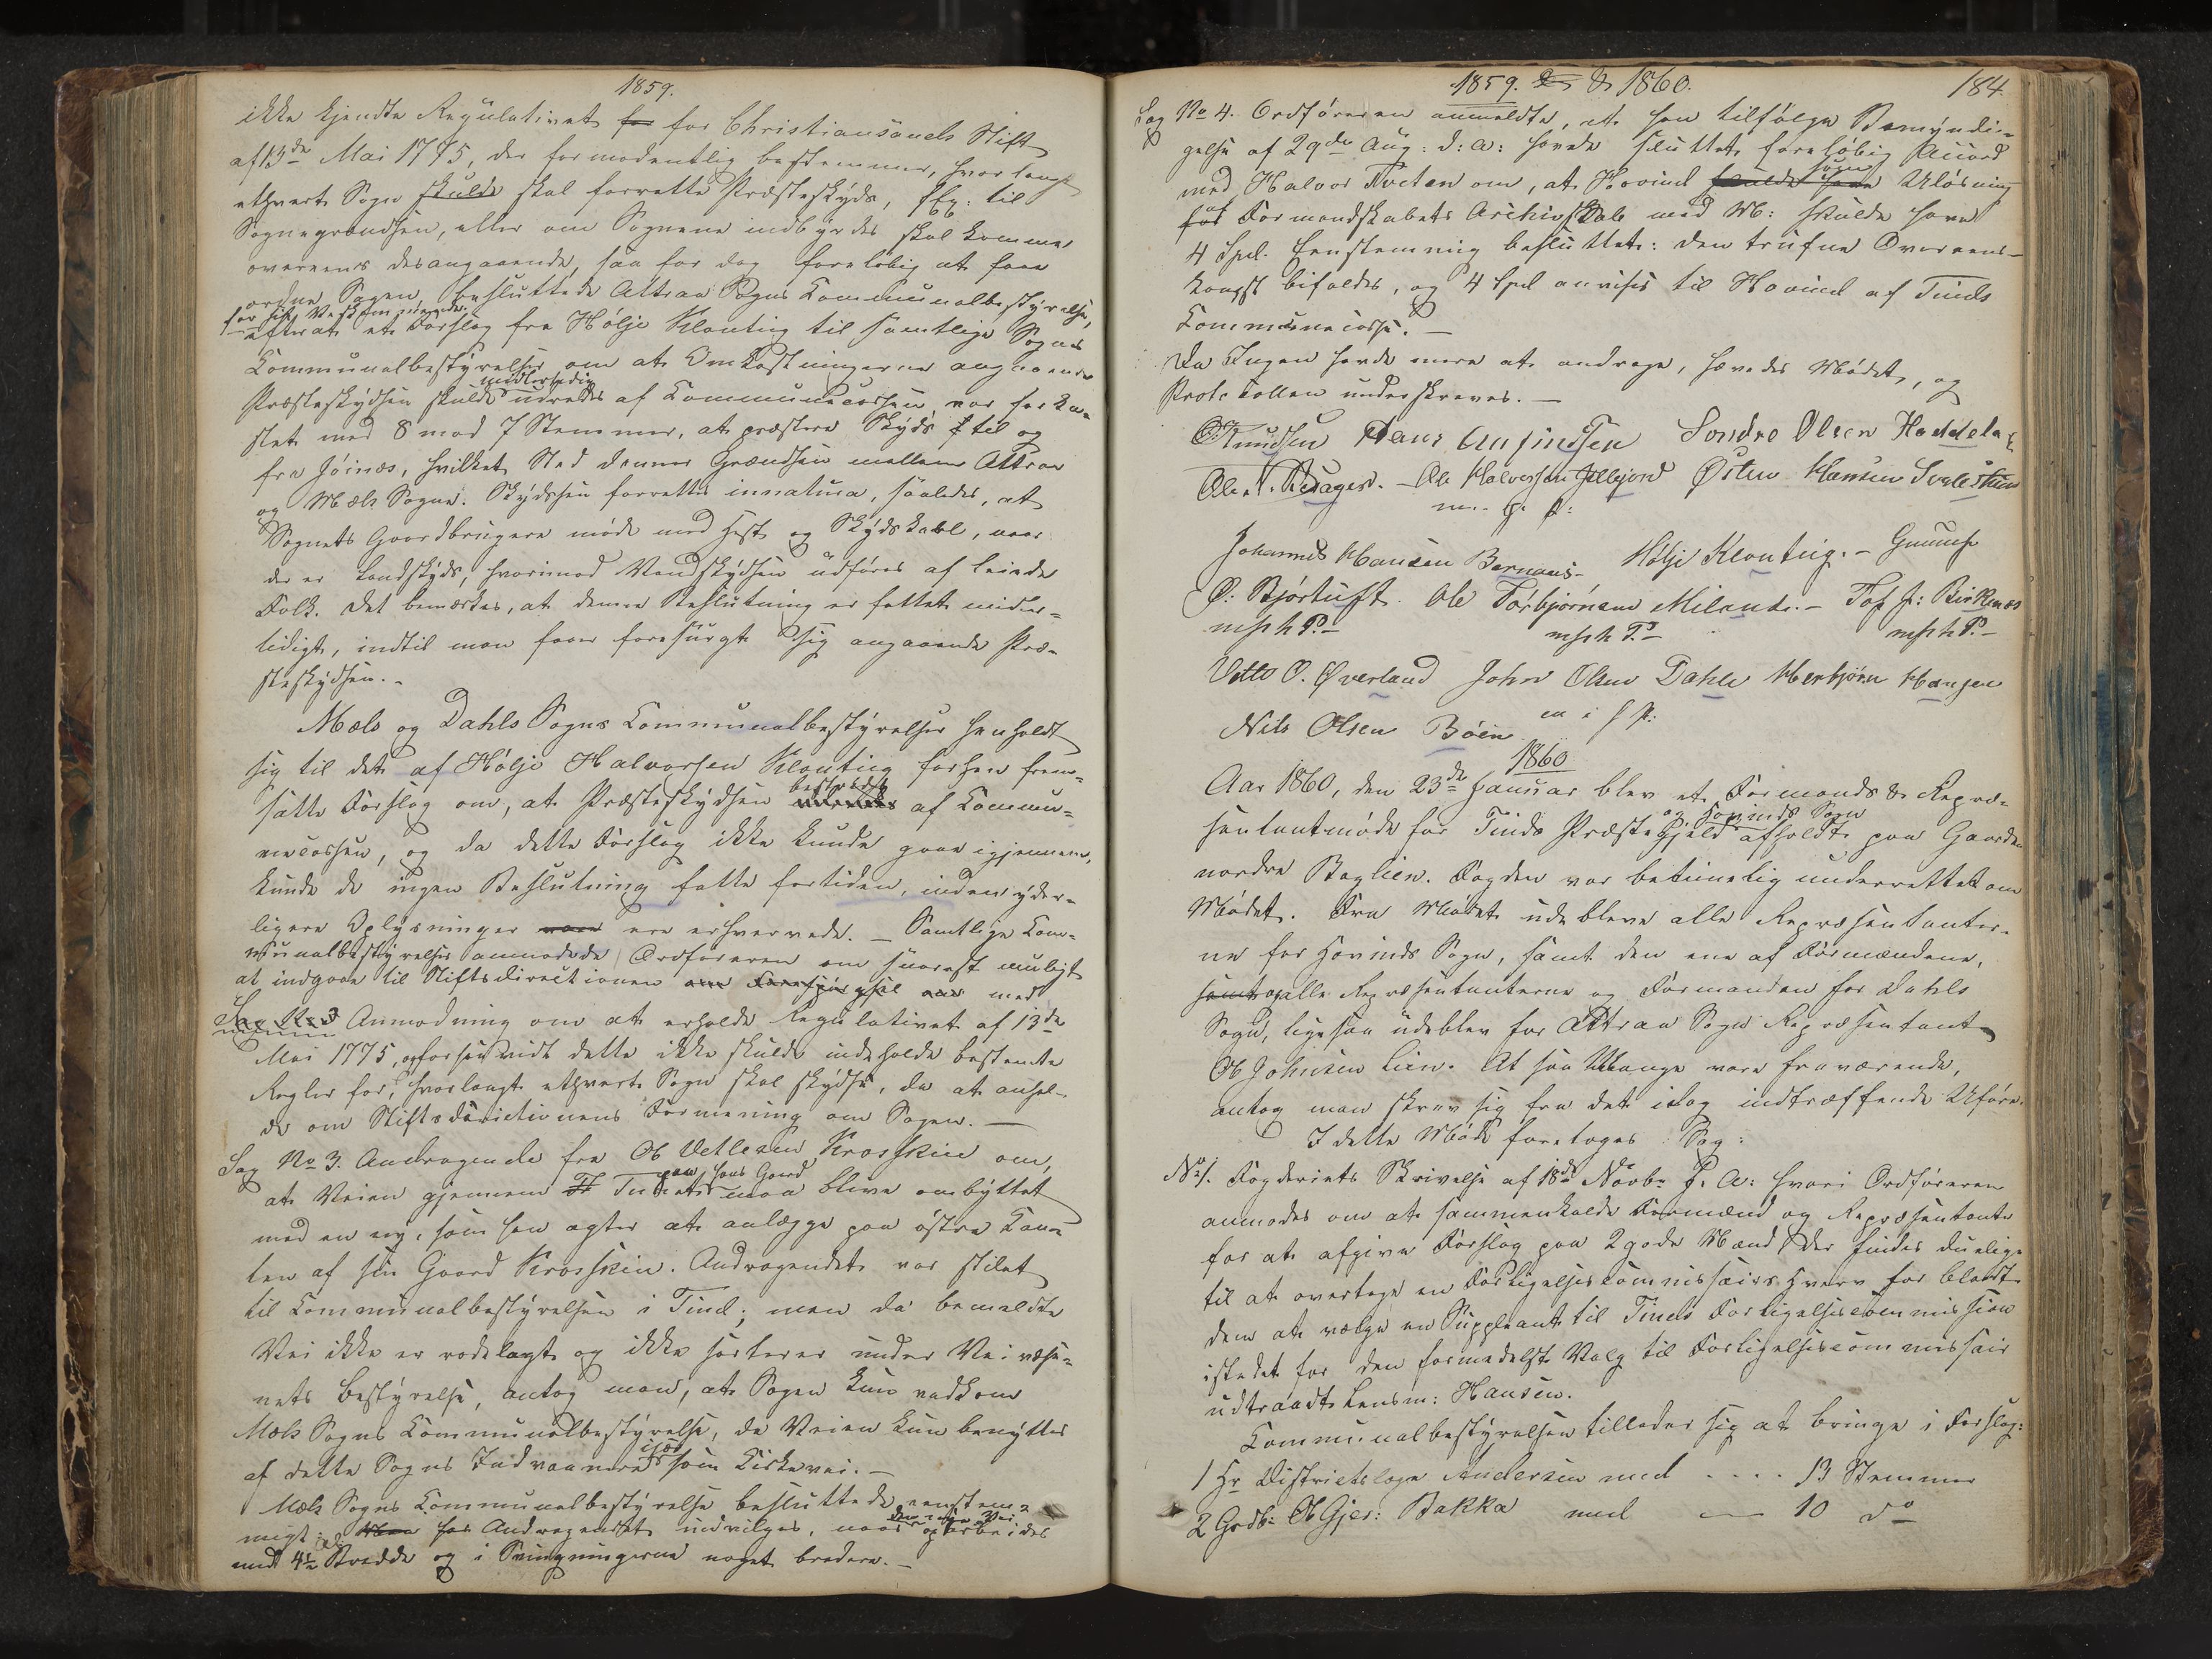 1859.
ikke kjendte Regulativet for for Christiansands Stift
af 13de Mai 1775, der formodentlig bestemmer, hvor langt
ethvert Sogn skulde skal forrette Præsteskyds, f Ex: til
Sognegrændsen, eller om Sognene indbyrdes skal komme
overeens desangaaende, saa for dog foreløbig at faae
ordne Sagen, besluttede Attraa Sogns Communalbestyrelse,
for sit Vedkommende
efterat et Forslag fra Hølje Klonteig til samtlige Sognes
Communalbestyrelser om at Omkostningerne angaaende
Præsteskydsen skulde midlertidig udredes af Communecassen, var forka-
stet med 8 mod 7 Stemmer, at præstere Skyds f til og
fra Jóinæs, hvilket Sted danner Grændsen mellem Attraa
og Mæls Sogne. Skydsen forrettes innatura, saaledes, at
Sognets Gaardbrugere møde med Hest og Skydskarl, naar
der er Landskyds, hvorimod Vandskydsen udføres af leiede
Folk. Det bemærkes, at denne Beslutning er fattet midler-
tidigt, indtil man faaer forespurgt sig angaaende Præ-
steskydsen.-
Mæls og Dahls Sogns Communalbestyrelser henholdt
sig til det af Hølje Halvorsen Klonteig forhen frem-
satte Forslag om, at Præsteskydsen bestrides af Commu-
necassen, og da dette Forslag ikke kunde gaae igjennem,
kunde de ingen Beslutning fatte for tiden, inden yder-
ligere Oplysninger vare ere erhvervede. - Samtlige Com-
munalbestyrelser anmodede Ordføreren om snarest muligt
at indgaae til Stiftsdirectionen om Forespørgsel med
Sag No 3 Anmodning om at erholde Regulativet af 13de
Mai 1775, og forsaavidt dette ikke skulde indeholde bestemte
Regler for, hvorlangt ethvert Sogn skal skydse, da at anhol-
de om Stiftsdirectionens Formening om Sagen. -
Sag No 3. Andragende fra Ol Vetlesen Krosskin om,
at Veien gjennem Tunet paa hans Gaard maa blive ombyttet
med en ny, som han agter at anlægge paa østre Kan-
ten af sin Gaard Krosskin. Andragendet var stilet
til Communalbestyrelsen i Tind; men da bemeldte
Vei ikke er rodelagt og ikke sorterer under Veivæse-
nets Bestyrelse, antog man, at Sagen kun vedkom
Mæls Sogns Communalbestyrelse, da Veien kun benyttes
af dette Sogns Indvaanere især som Kirkevei.-
Mæls Sogns Communalbestyrelse besluttede eenstem-
migt: Andragendet indvilges, naar den nye Vei oparbeides
med 4 Al Bredde og i Svingningerne noget bredere.-
1859. & 1860.
184
Sag No 4. Ordføreren anmeldte, at han tilfølge Bemyndi-
gelse af 29de Aug: d: A: havde sluttet foreløbig Accord
med Halvor Tveten om, at Hovind Sogns Udløsning
for af Formandskabets Archivskab med M: skulde have
4 Spd. Eenstemmig besluttet: Den trufne Overeens-
komst bifaldes, og 4 Spd anvises til Hovind af Tinds
Communecasse. -
Da Ingen havde mere at andrage, hævedes Mødet, og
Protocollen underskreves. -
O. Knudsen Hans Anfindsen Sondre Olsen
Ole Halvorsen Østen Hansen
m. h. P:
Johannes Hansen Bernaas- Hølje Klonteig. - Gunnuf
O: Bjórtuft. Ole Torbjørnsen Milands. - Tof J: Birkenæs
m p h P.- m p h P.- m p h P.-
Vetle O. Øverland John Olsen Dahle Herbjørn Hansen
Nils Olsen Bóen m i h P:
1860
Aar 1860, den 23de Januar blev et Formands & Repræ-
sentantmøde for Tinds Præstegjeld og Hovinds Sogn afholdt paa Gaarden
nordre Baglien. Fogden var betimelig underrettet om
Mødet. Fra Mødet udebleve alle Repræsentanter-
ne for Hovinds Sogn, samt den ene af Formændene,
samt og alle Repræsentanterne og Formanden for Dahls
Sogn, ligesaa udeblev for Attraa Sogn Repræsentant
Ol Johnsen Lien. At saa Mange vare fraværende,
antog man skrev sig fra det idag indtræffende Uføre.
I dette Møde foretoges Sag:
No 1. Fogderiets Skrivelse af 18de Novbr f. A: hvori Ordføreren
anmodes om at sammenkalde Formænd og Repræsentanter
for at afgive Forslag paa 2 gode Mænd, der findes duelige
til at overtage en Forligelsescommissairs Hverv for blandt
dem at vælge en Suppleant til Tinds Forligelsescommission
istedet for den formedelst Valg til Forligelsescommissair
udtraadte Lensm: Hansen.
Communalbestyrelsen tillader sig at bringe i Forslag:
1 Hr Districtslæge Andersen med .... 13 Stemmer
2 Grdbr: Ol Gjer: Bakka med - 10 do